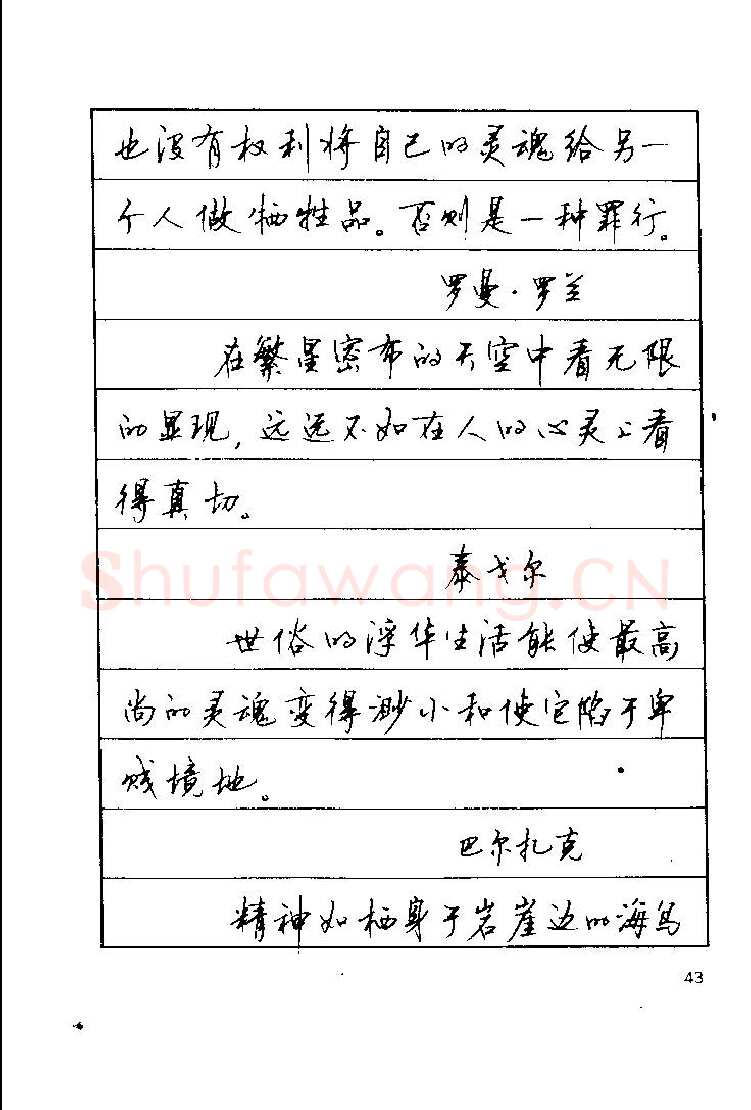 也没有权利将自己的灵魂给另一
个人做牺牲品。否则是一种罪行。
罗曼·罗兰
在繁星密布的天空中看无限
的显现，远远不如在人的心灵上看
得真切。
泰戈尔
Shufawang.CN
世俗的浮华生活能使最高
尚的灵魂变得渺小和使它陷于卑
贱境地。
巴尔扎克
精神如栖身于岩崖边的海鸟
43